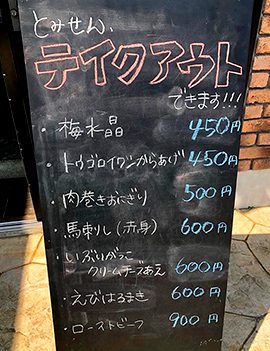 とみせん、
テイクアウト
できます!!!
・梅水晶 450円
・トウゴロイワシからあげ 450円
・肉巻きおにぎり 500円
・馬刺し(赤身) 600円
・いぶりがっこ
クリームチーズあえ 600円
・えびはるまき 600円
・ローストビーフ 900円